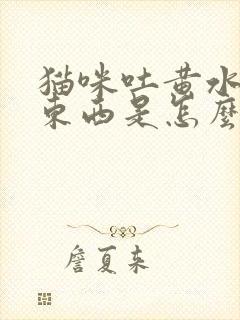 猫咪吐黄水
东西是怎麽
詹夏来